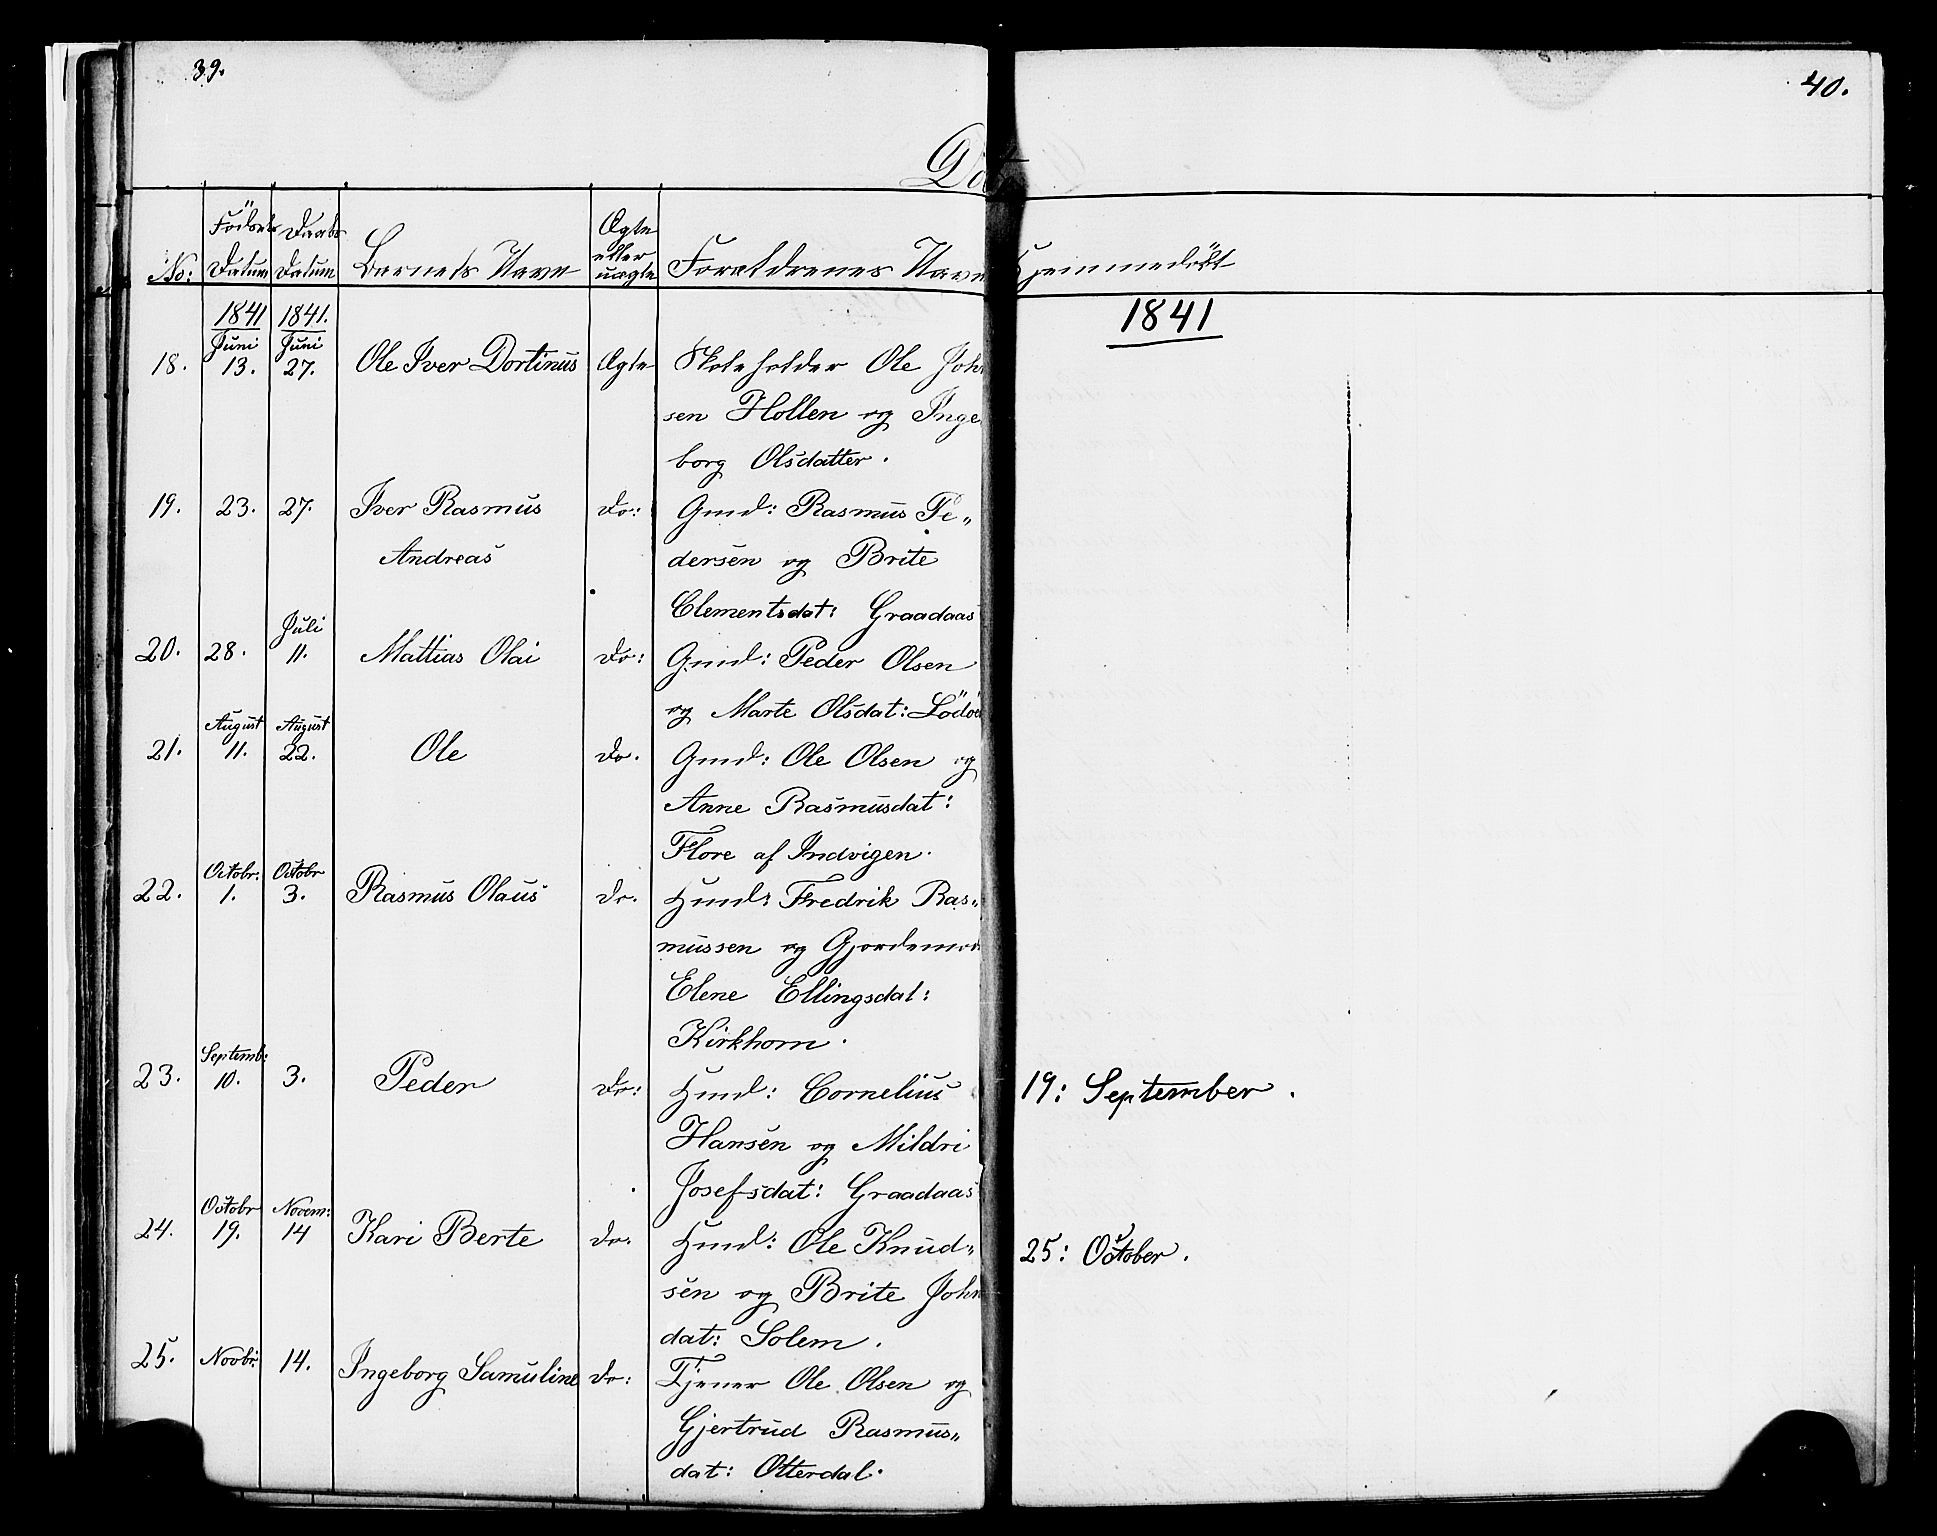 39.
40.
Dö
No:
Födsels
Datum
Daabs
Datum
Barnets Navn
Ægte
eller
uægte
Forældrenes Navn
Hjemmedöbt
1841
1841
1841.
18.
Juni
13.
Juni
27.
Ole Iver Dortinus
Ægte
Skoleholder Ole John
sen Hollen og Inge
borg Olsdatter.
19.
23.
27.
Iver Rasmus
Andreas
do:
Gmd: Rasmus Pe„
dersen og Brite
Clementsdat: Graadaas
20.
28.
Juli
11.
Mattias Olai
do:
Gmd: Peder Olsen
og Marte Olsdat: Lödöe
21.
August
11.
August
22.
Ole
do.
Gmd: Ole Olsen og
Anne Rasmusdat:
Flore af Indvigen.
22.
Octobr:
1.
Octobr
3.
Rasmus Olaus
do.
Hmd: Fredrik Ras„
mussen og Gjordemod
Elene Ellingsdat:
Kirkhorn.
23.
Septemb:
10.
3.
Peder
do:
Hmd: Cornelius
Hansen og Mildri
Josefsdat: Graadaas
19: September.
24.
Octobr
19.
Novem:
14
Kari Berte
do.
Hmd: Ole Knud„
sen og Brite John
dat: Solem.
25: October.
25.
Novbr:
14.
Ingeborg Samuline
do:
Tjener Ole Olsen og
Gjertrud Rasmus„
dat: Otterdal.